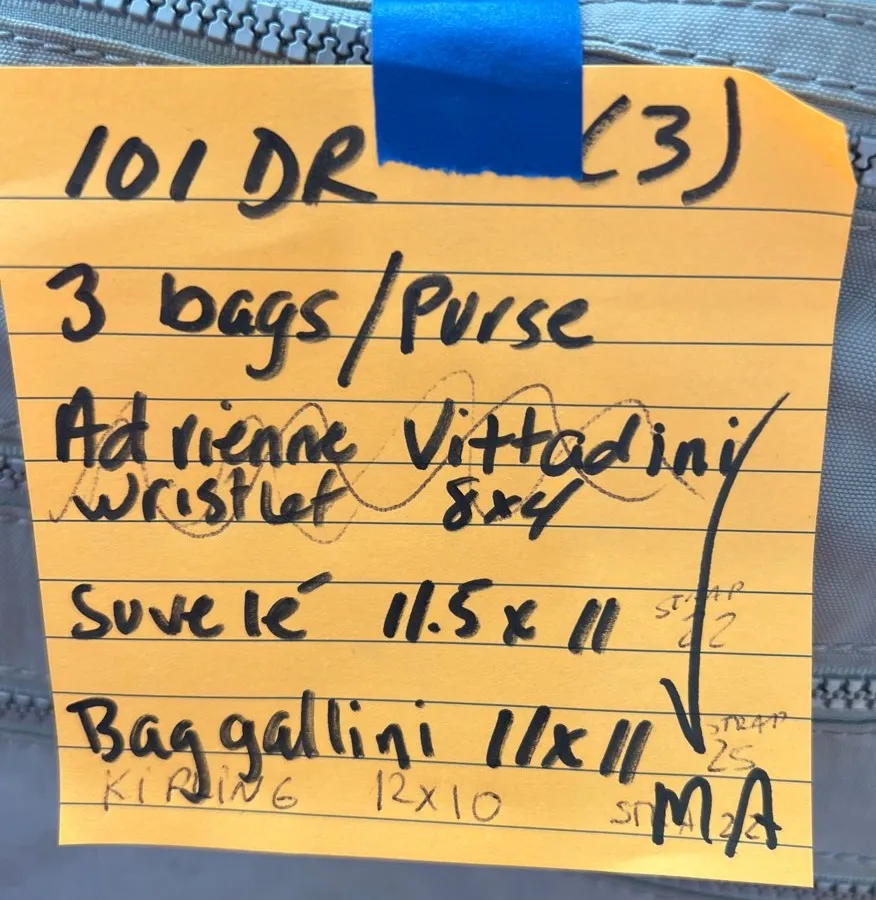 101 DR (3)
3 bags/Purse
Adrienne Vittadini
wristlet 8x4
Suvelé 11.5 x 11 STRAP 22
Baggallini 11x11 STRAP 25
KIPLING 12x10 MA 22